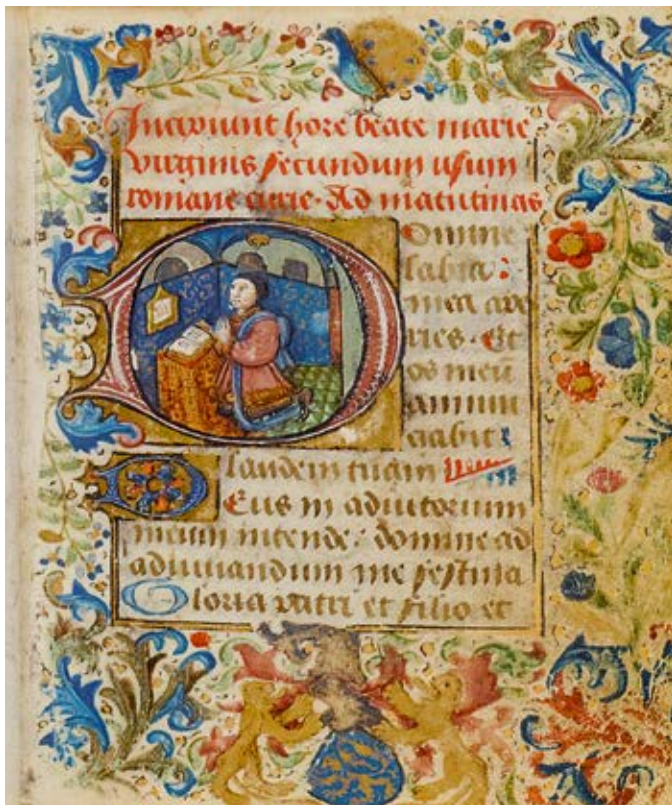 Incipiunt hore beate marie
virginis secundum usum
romane curie. Ad matutinas
Domine
labia
mea ape
ries. Et
os meũ
annun
ciabit
laudem tuam
Deus in adiutorium
meum intende: domine ad
adiuuandum me festina
Gloria patri et filio et